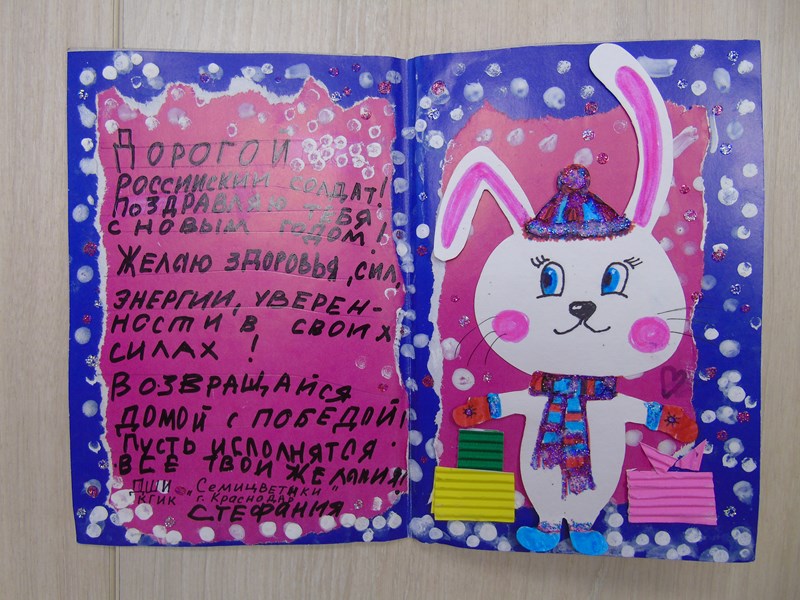 ДОРОГОЙ
РОССИЙСКИЙ СОЛДАТ!
ПОЗДРАВЛЯЮ ТЕБЯ
С НОВЫМ ГОДОМ!
ЖЕЛАЮ ЗДОРОВЬЯ, СИЛ,
ЭНЕРГИИ, УВЕРЕН-
НОСТИ В СВОИХ
СИЛАХ!
ВОЗВРАЩАЙСЯ
ДОМОЙ С ПОБЕДОЙ!
ПУСТЬ ИСПОЛНЯТСЯ
ВСЕ ТВОИ ЖЕЛАНИЯ!
ДШИ „Семицветики"
КГИК г. Краснодар
СТЕФАНИЯ